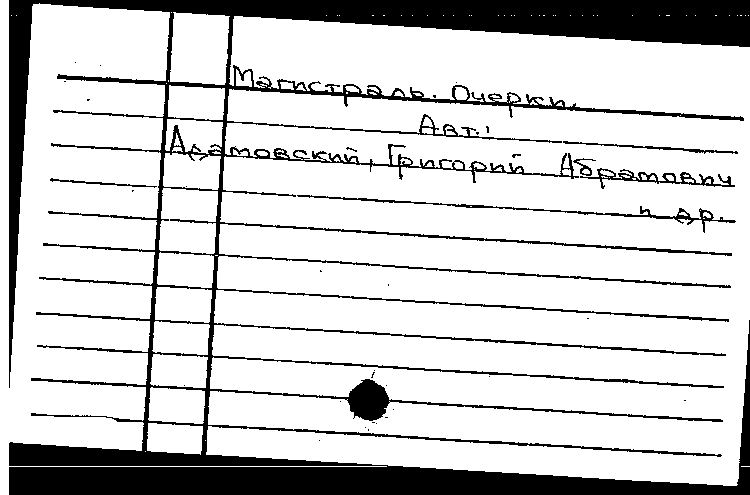 Магистраль. Очерки.
Авт.:
Адамовский, Григорий Абрамович
и др.